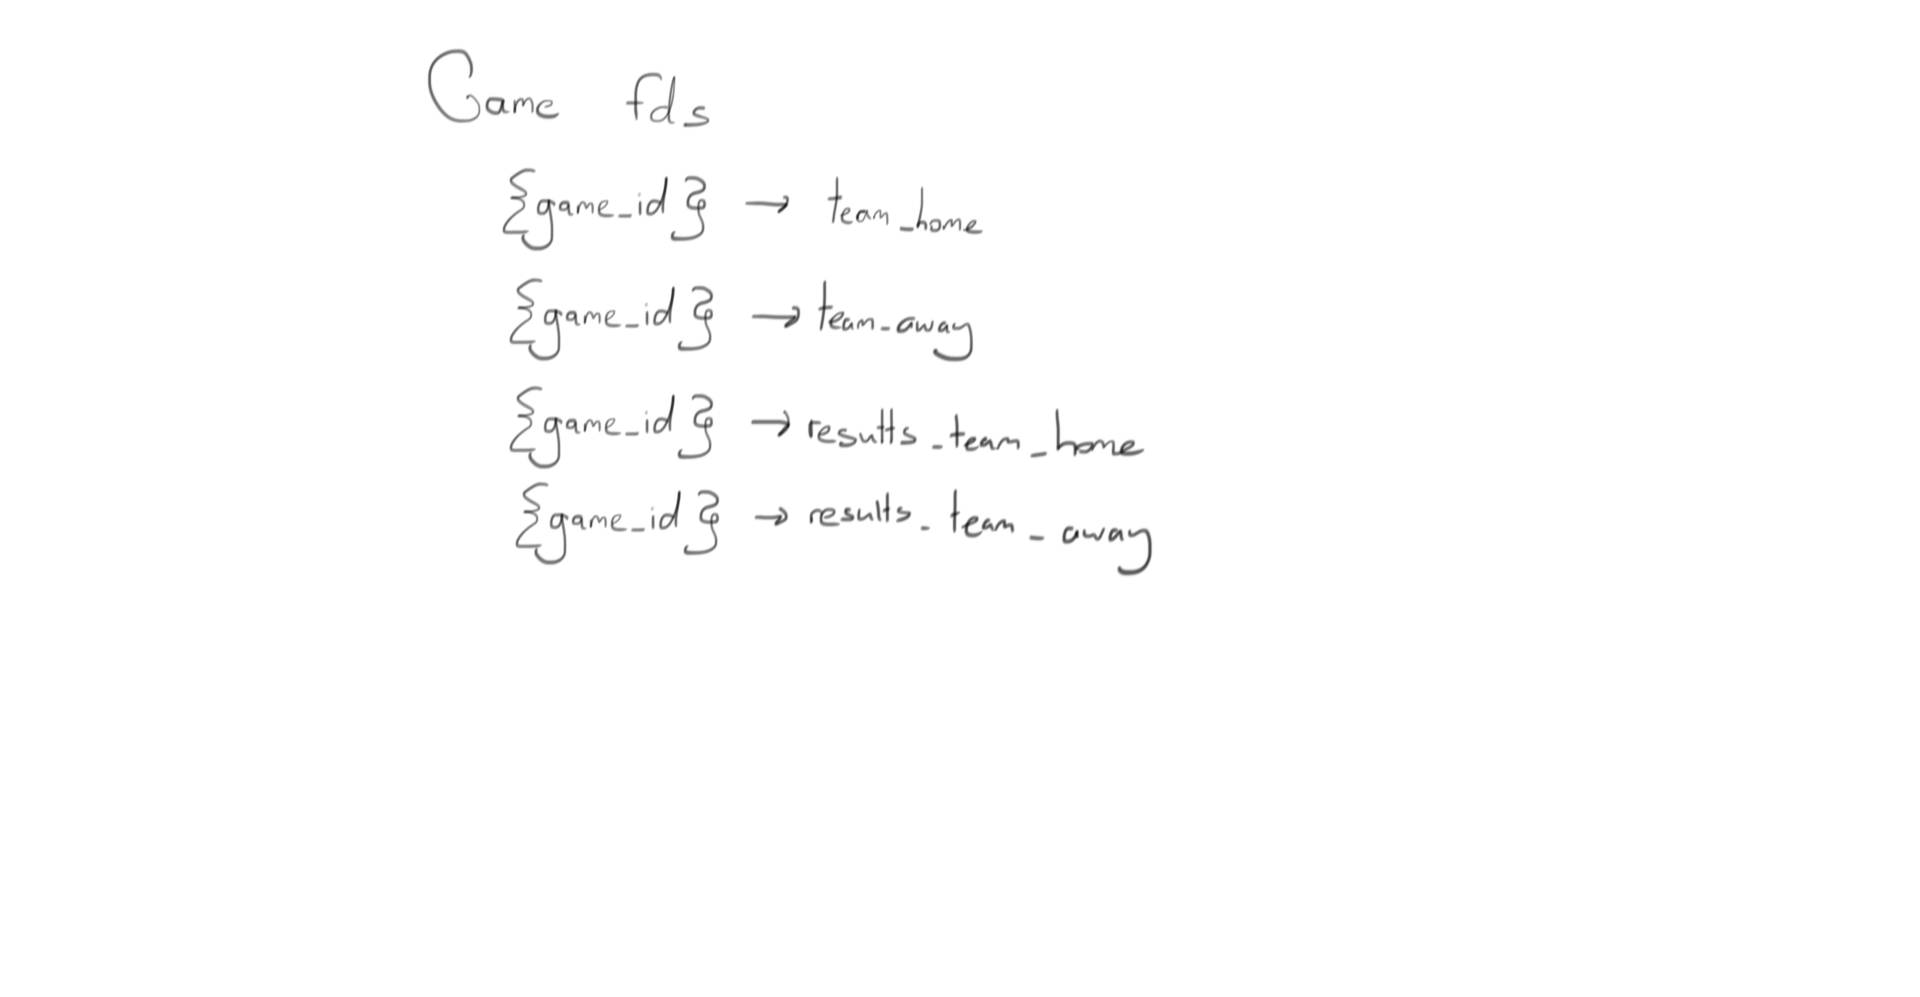 Game fds
{game_id} → team_home
{game_id} → team_away
{game_id} → results_team_home
{game_id} → results_team_away